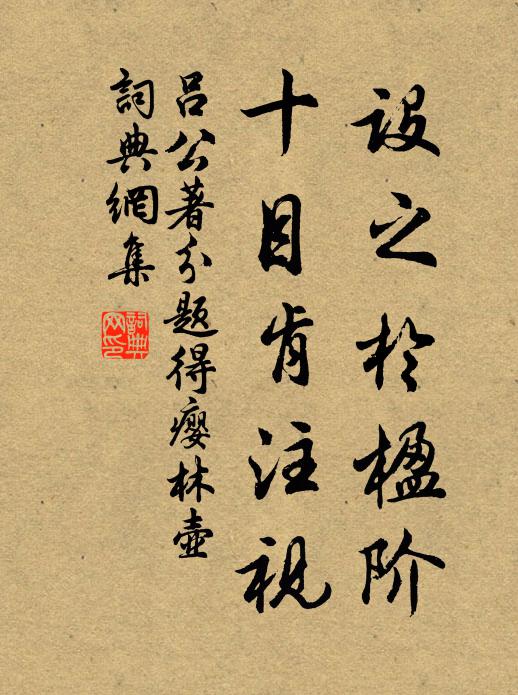 设之於楹阶
十目肯注视
吕公著分题得瘿林壶
詞典網集
詞典网印